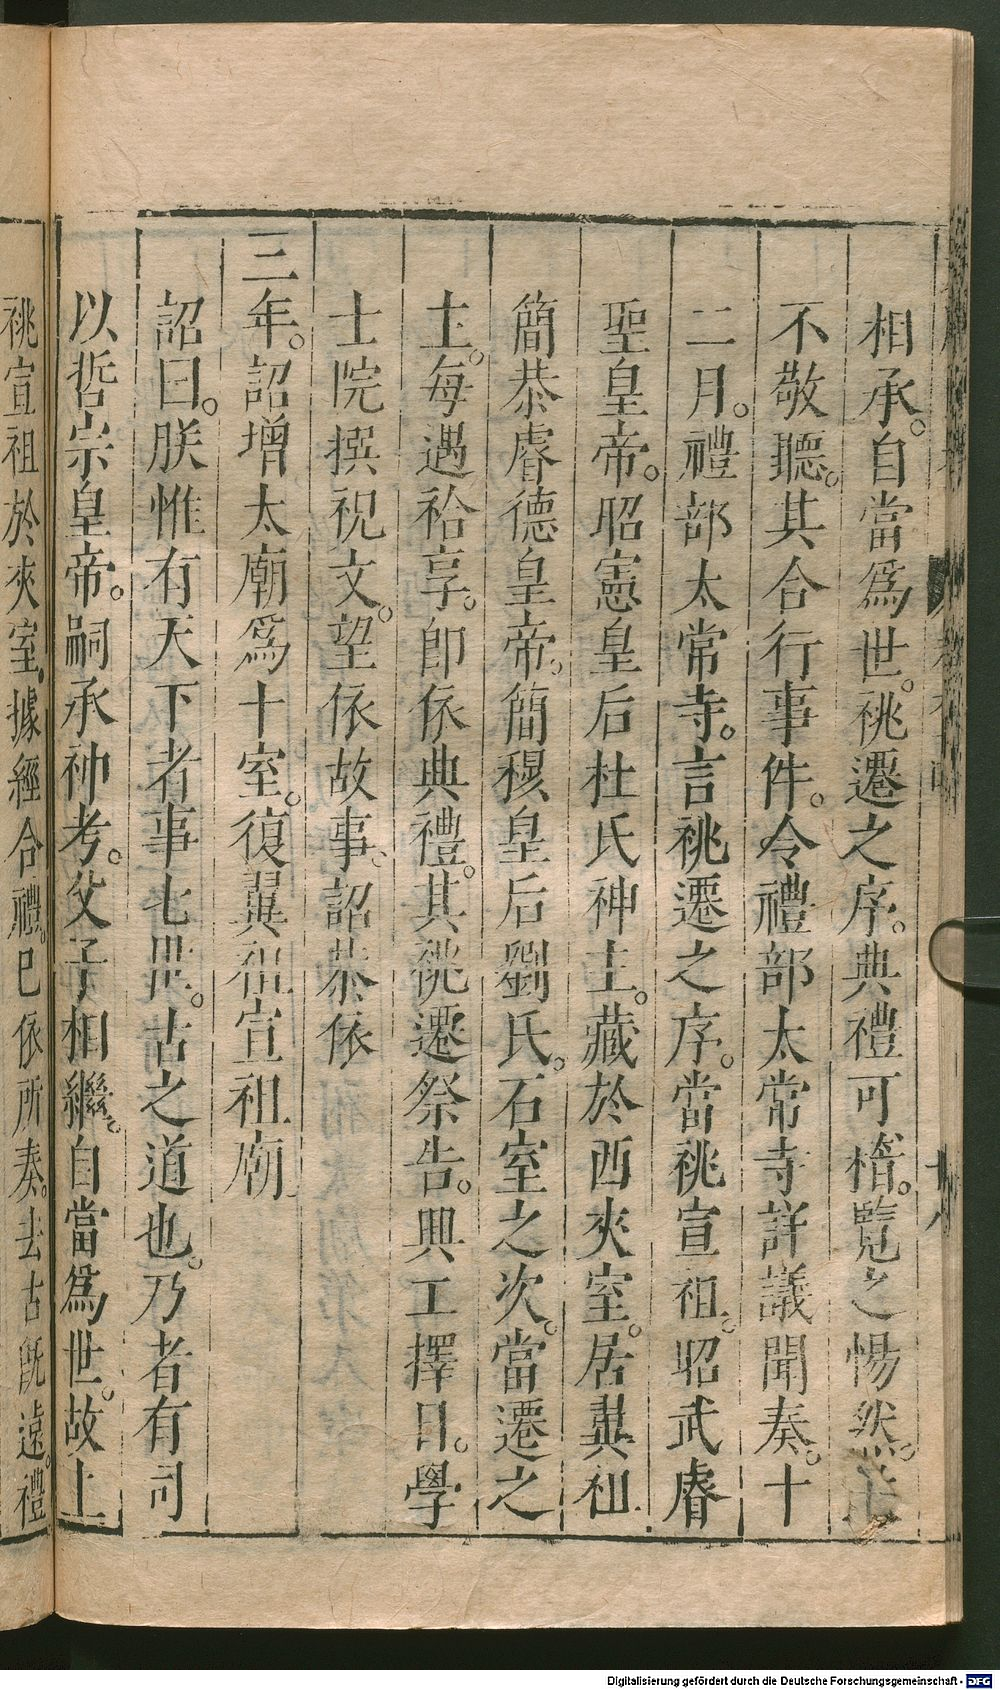 相承。自當爲世。祧遷之序。典禮可稽。覽之惕然。
不敬聽。其合行事件。令禮部太常寺詳議聞奏。十
二月。禮部太常寺。言祧遷之序。當祧宣祖。昭武睿
聖皇帝。昭憲皇后杜氏神主。藏於西夾室。居翼祖
簡恭睿德皇帝。簡穆皇后劉氏。石室之次。當遷之
主。每遇祫享。即依典禮。其祧遷祭告。興工擇日。學
士院撰祝文。望依故事。詔恭依
三年。詔增太廟爲十室。復翼祖宣祖廟
詔曰。朕惟有天下者事七世。古之道也。乃者有司
以哲宗皇帝。嗣承神考。父子相繼。自當爲世。故上
祧宣祖於夾室。據經合禮。已依所奏。去古旣遠。禮
十八
Digitalisierung gefördert durch die Deutsche Forschungsgemeinschaft - DFG